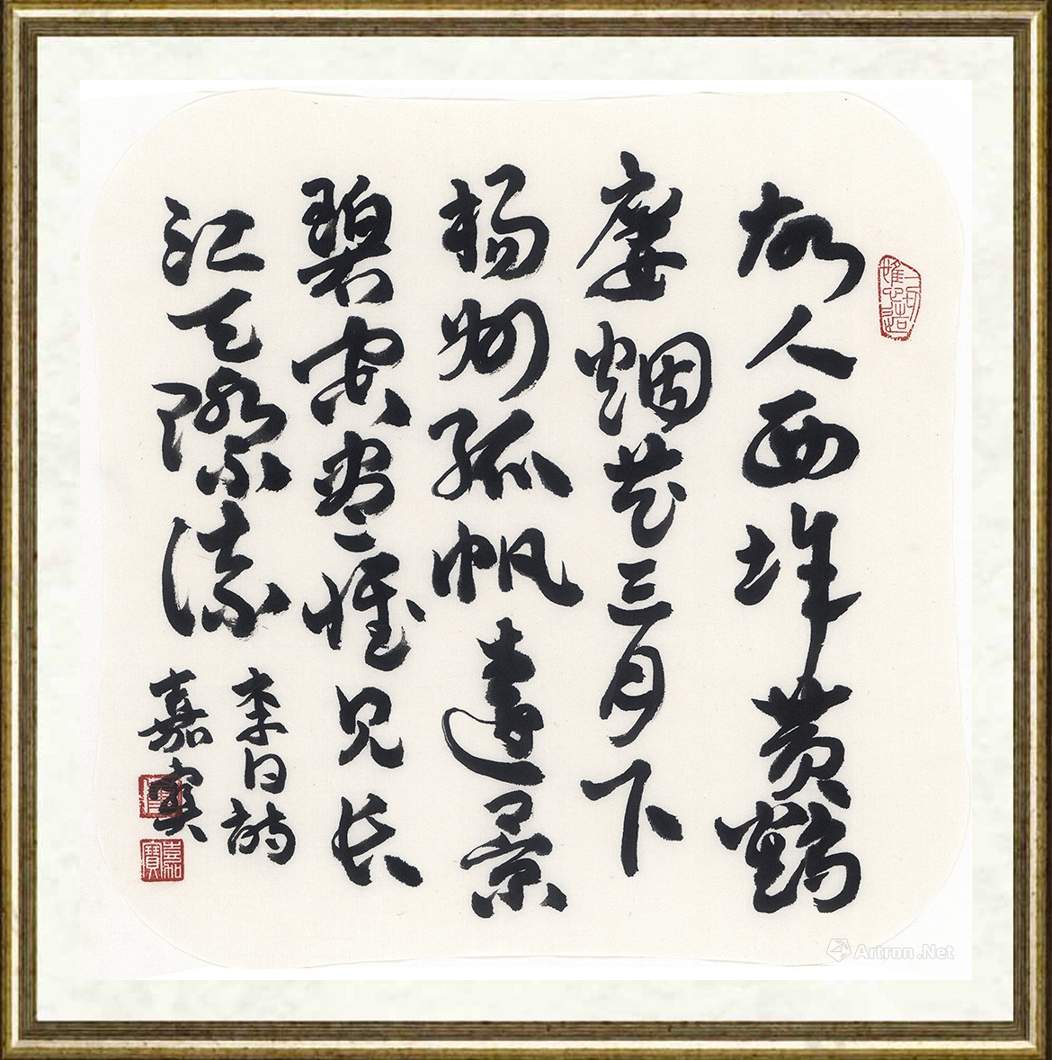 故人西辞黄鹤
楼烟花三月下
杨州孤帆远景
碧空尽惟见长
江天际流
李白诗
嘉寶
嘉寶
Artron.Net